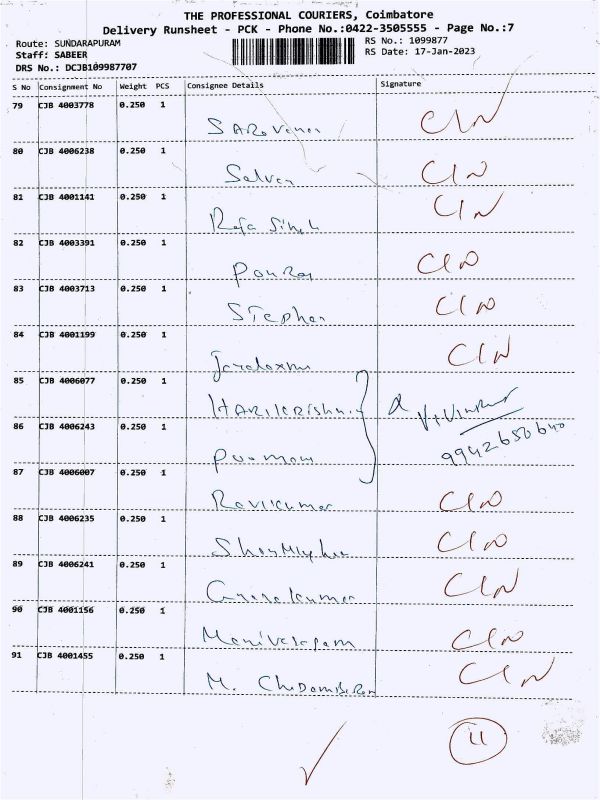 THE PROFESSIONAL COURIERS, Coimbatore
Delivery Runsheet - PCK - Phone No.:0422-3505555 - Page No.:7
Route: SUNDARAPURAM
RS No.: 1099877
Staff: SABEER
RS Date: 17-Jan-2023
DRS No.: DCJB109987707
S No Consignment No Weight PCS Consignee Details Signature
79 CJB 4003778 0.250 1
CIN
80 CJB 4006238 0.250 1
Selvan CIN
81 CJB 4001141 0.250 1 CIN
Raja Singh
82 CJB 4003391 0.250 1 CIN
Ponraj
83 CJB 4003713 0.250 1 CIN
Stephen
84 CJB 4001199 0.250 1 CIN
85 CJB 4006077 0.250 1
HARIKrishnan
86 CJB 4006243 0.250 1 9942650640
87 CJB 4006007 0.250 1
Ravikumar CIN
88 CJB 4006235 0.250 1 CIN
89 CJB 4006241 0.250 1 CIN
Gunasekumar
90 CJB 4001156 0.250 1
Manivasagam CIN
91 CJB 4001455 0.250 1 CIN
M. ChiDamBaram
11